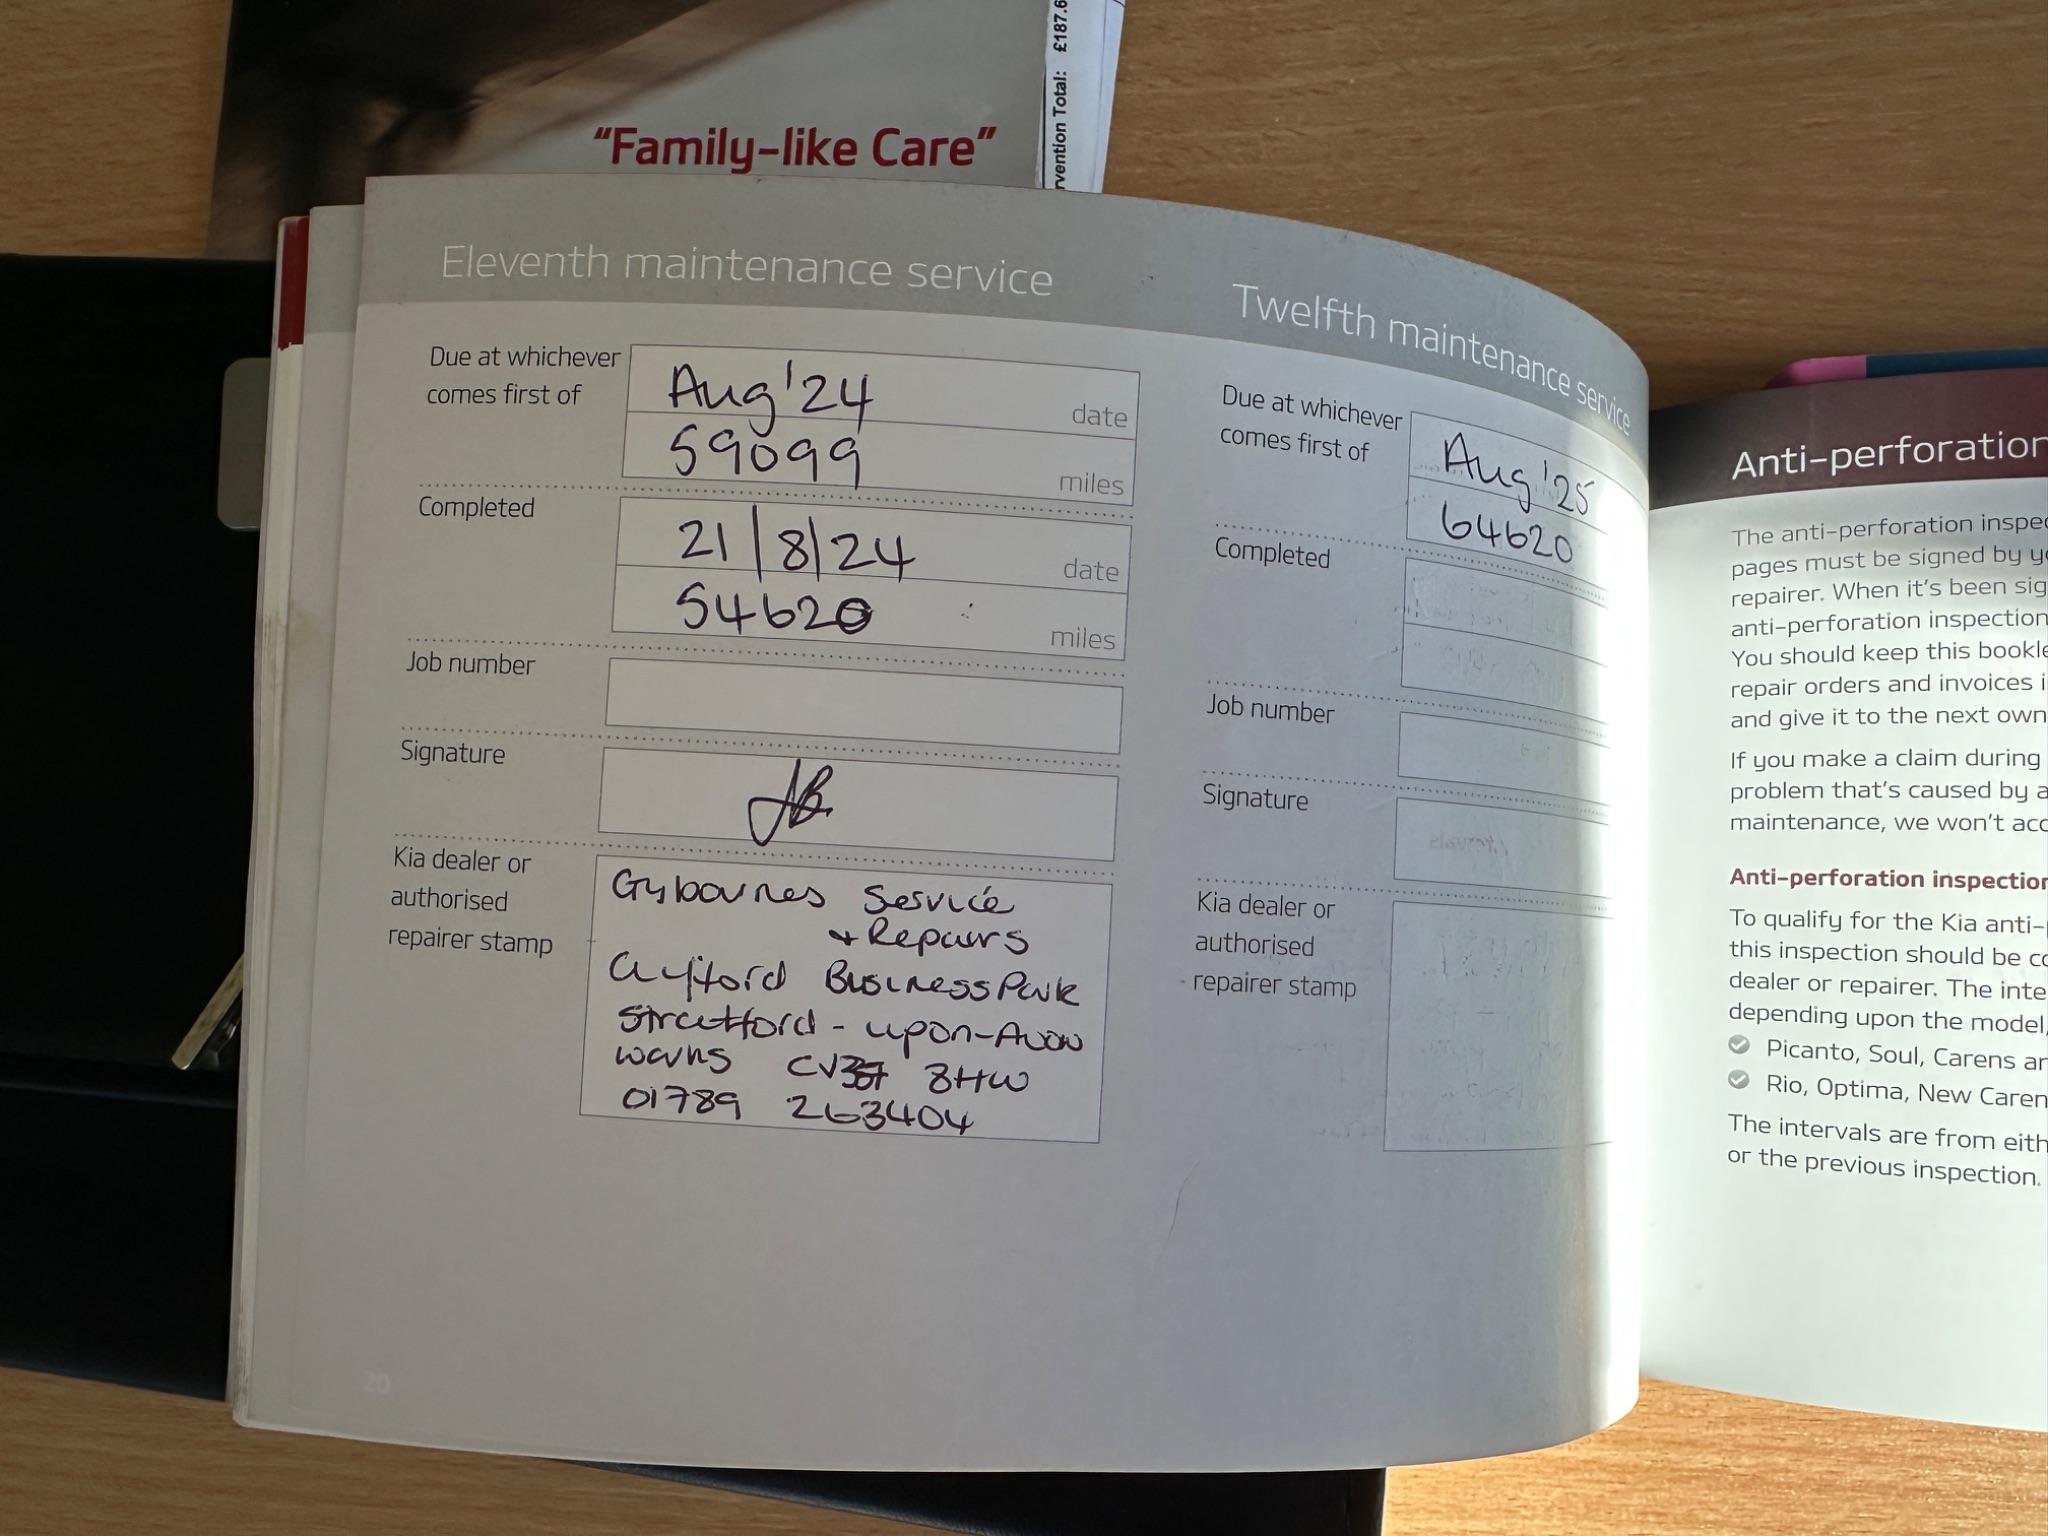 "Family-like Care"
rvention Total: £187.6
Eleventh maintenance service
Due at whichever
comes first of
Aug '24 date
59099 miles
Completed
21/8/24 date
54620 miles
Job number
Signature
Kia dealer or
authorised
repairer stamp
Gybournes Service
+ Repairs
Clyfford Business Park
Stratford-upon-Avon
Warks CV37 8HW
01789 263404
20
Twelfth maintenance service
Due at whichever
comes first of
Aug '25
64620
Completed
Job number
Signature
Kia dealer or
authorised
repairer stamp
Anti-perforation
The anti-perforation inspec
pages must be signed by yo
repairer. When it's been sig
anti-perforation inspection
You should keep this bookle
repair orders and invoices i
and give it to the next own
If you make a claim during
problem that's caused by a
maintenance, we won't acc
Anti-perforation inspection
To qualify for the Kia anti-
this inspection should be co
dealer or repairer. The inte
depending upon the model,
Picanto, Soul, Carens an
Rio, Optima, New Caren
The intervals are from eith
or the previous inspection.